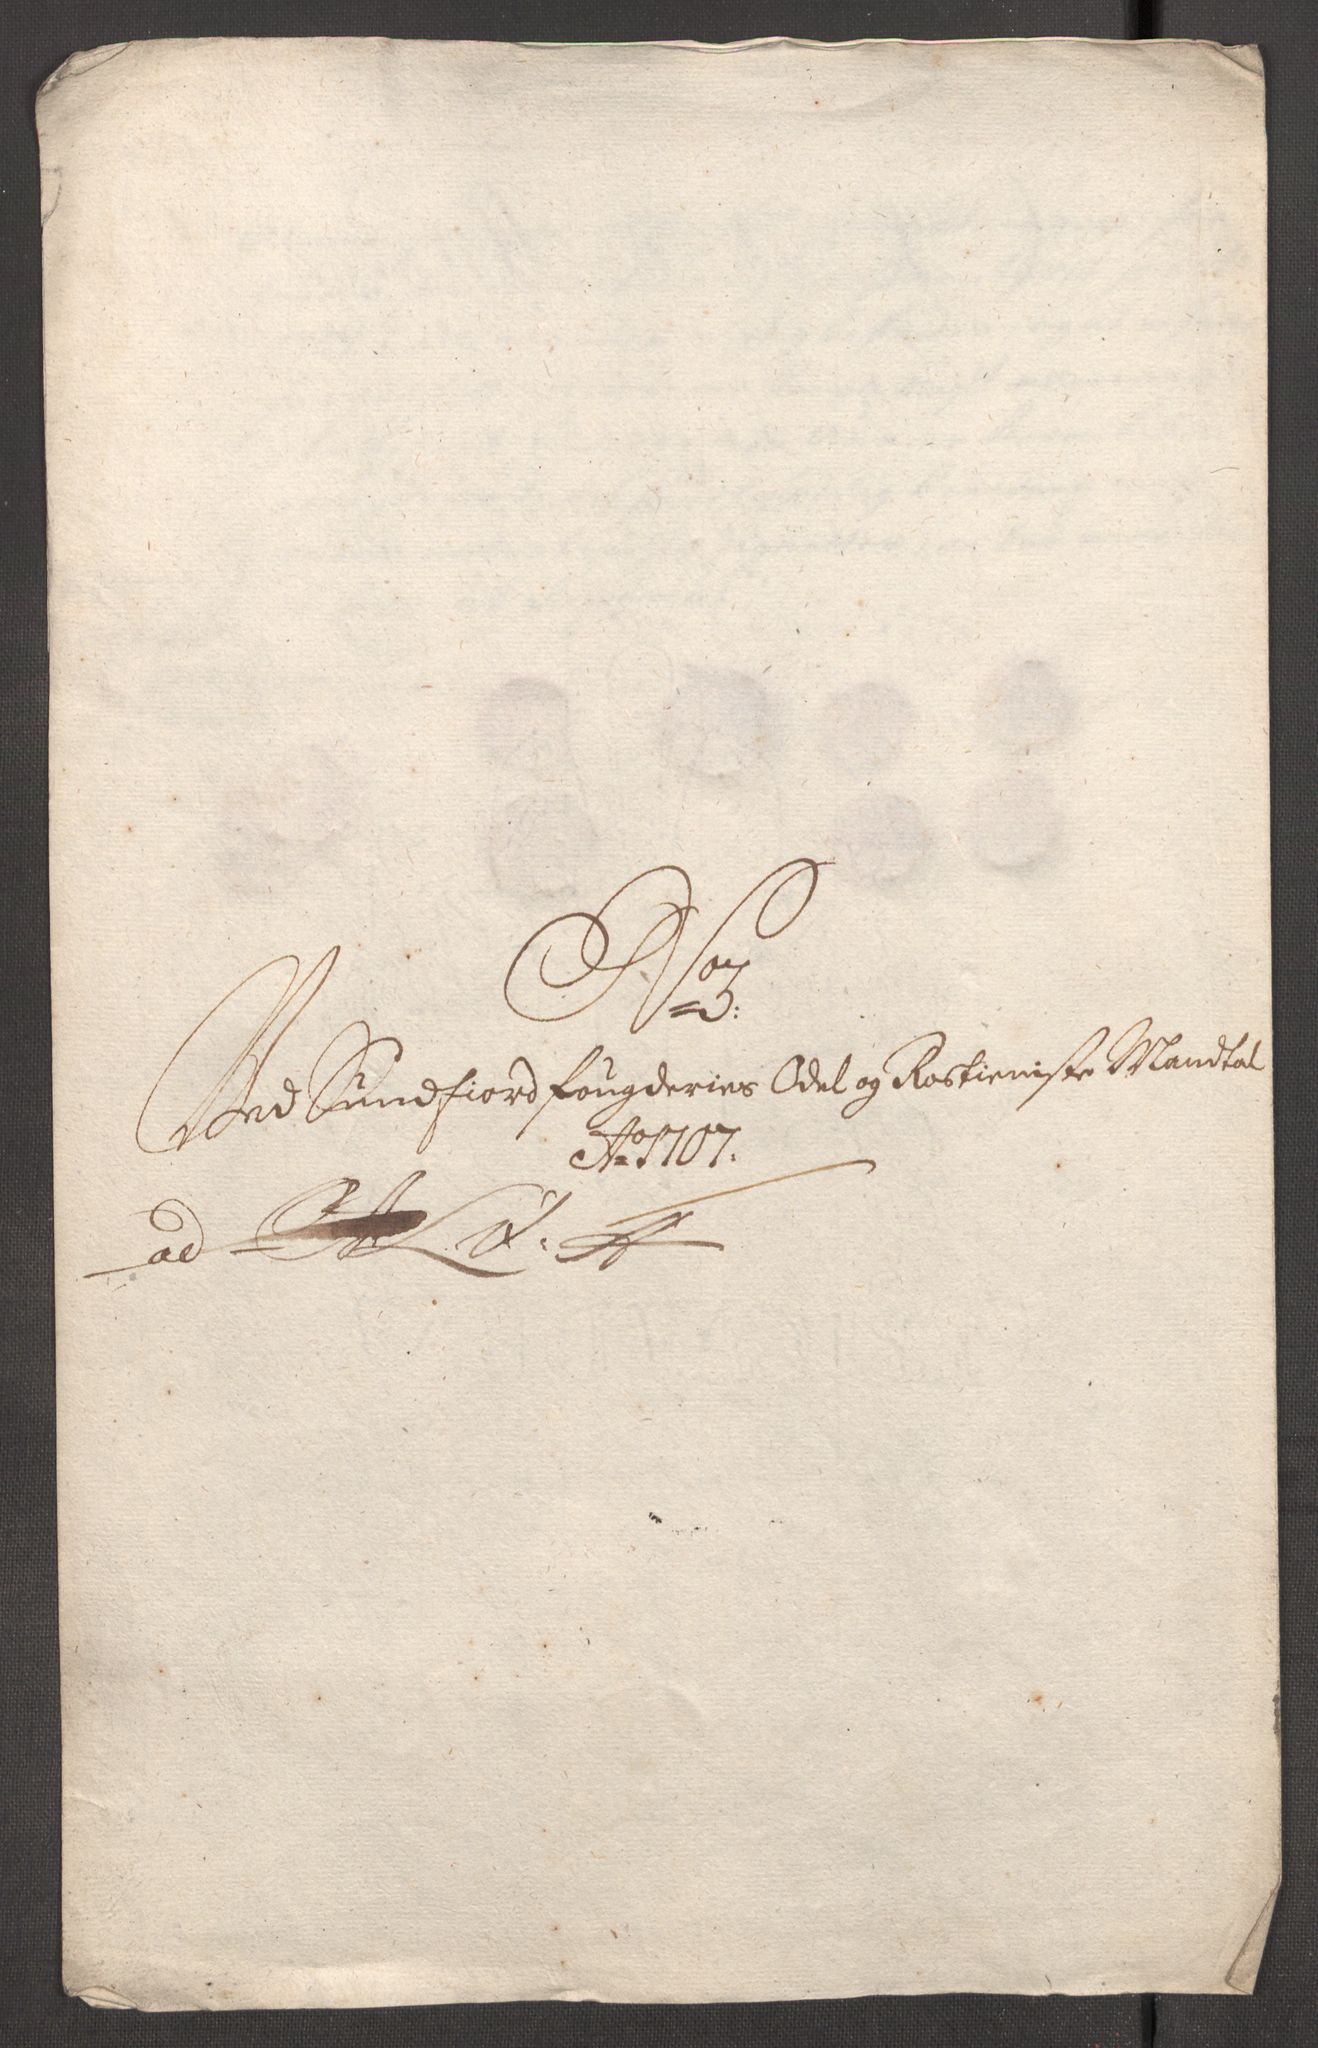 No 3:
Ved Sundfiord fougderies Odel og Rostieniste Mandtal
Ao 1707.
ad